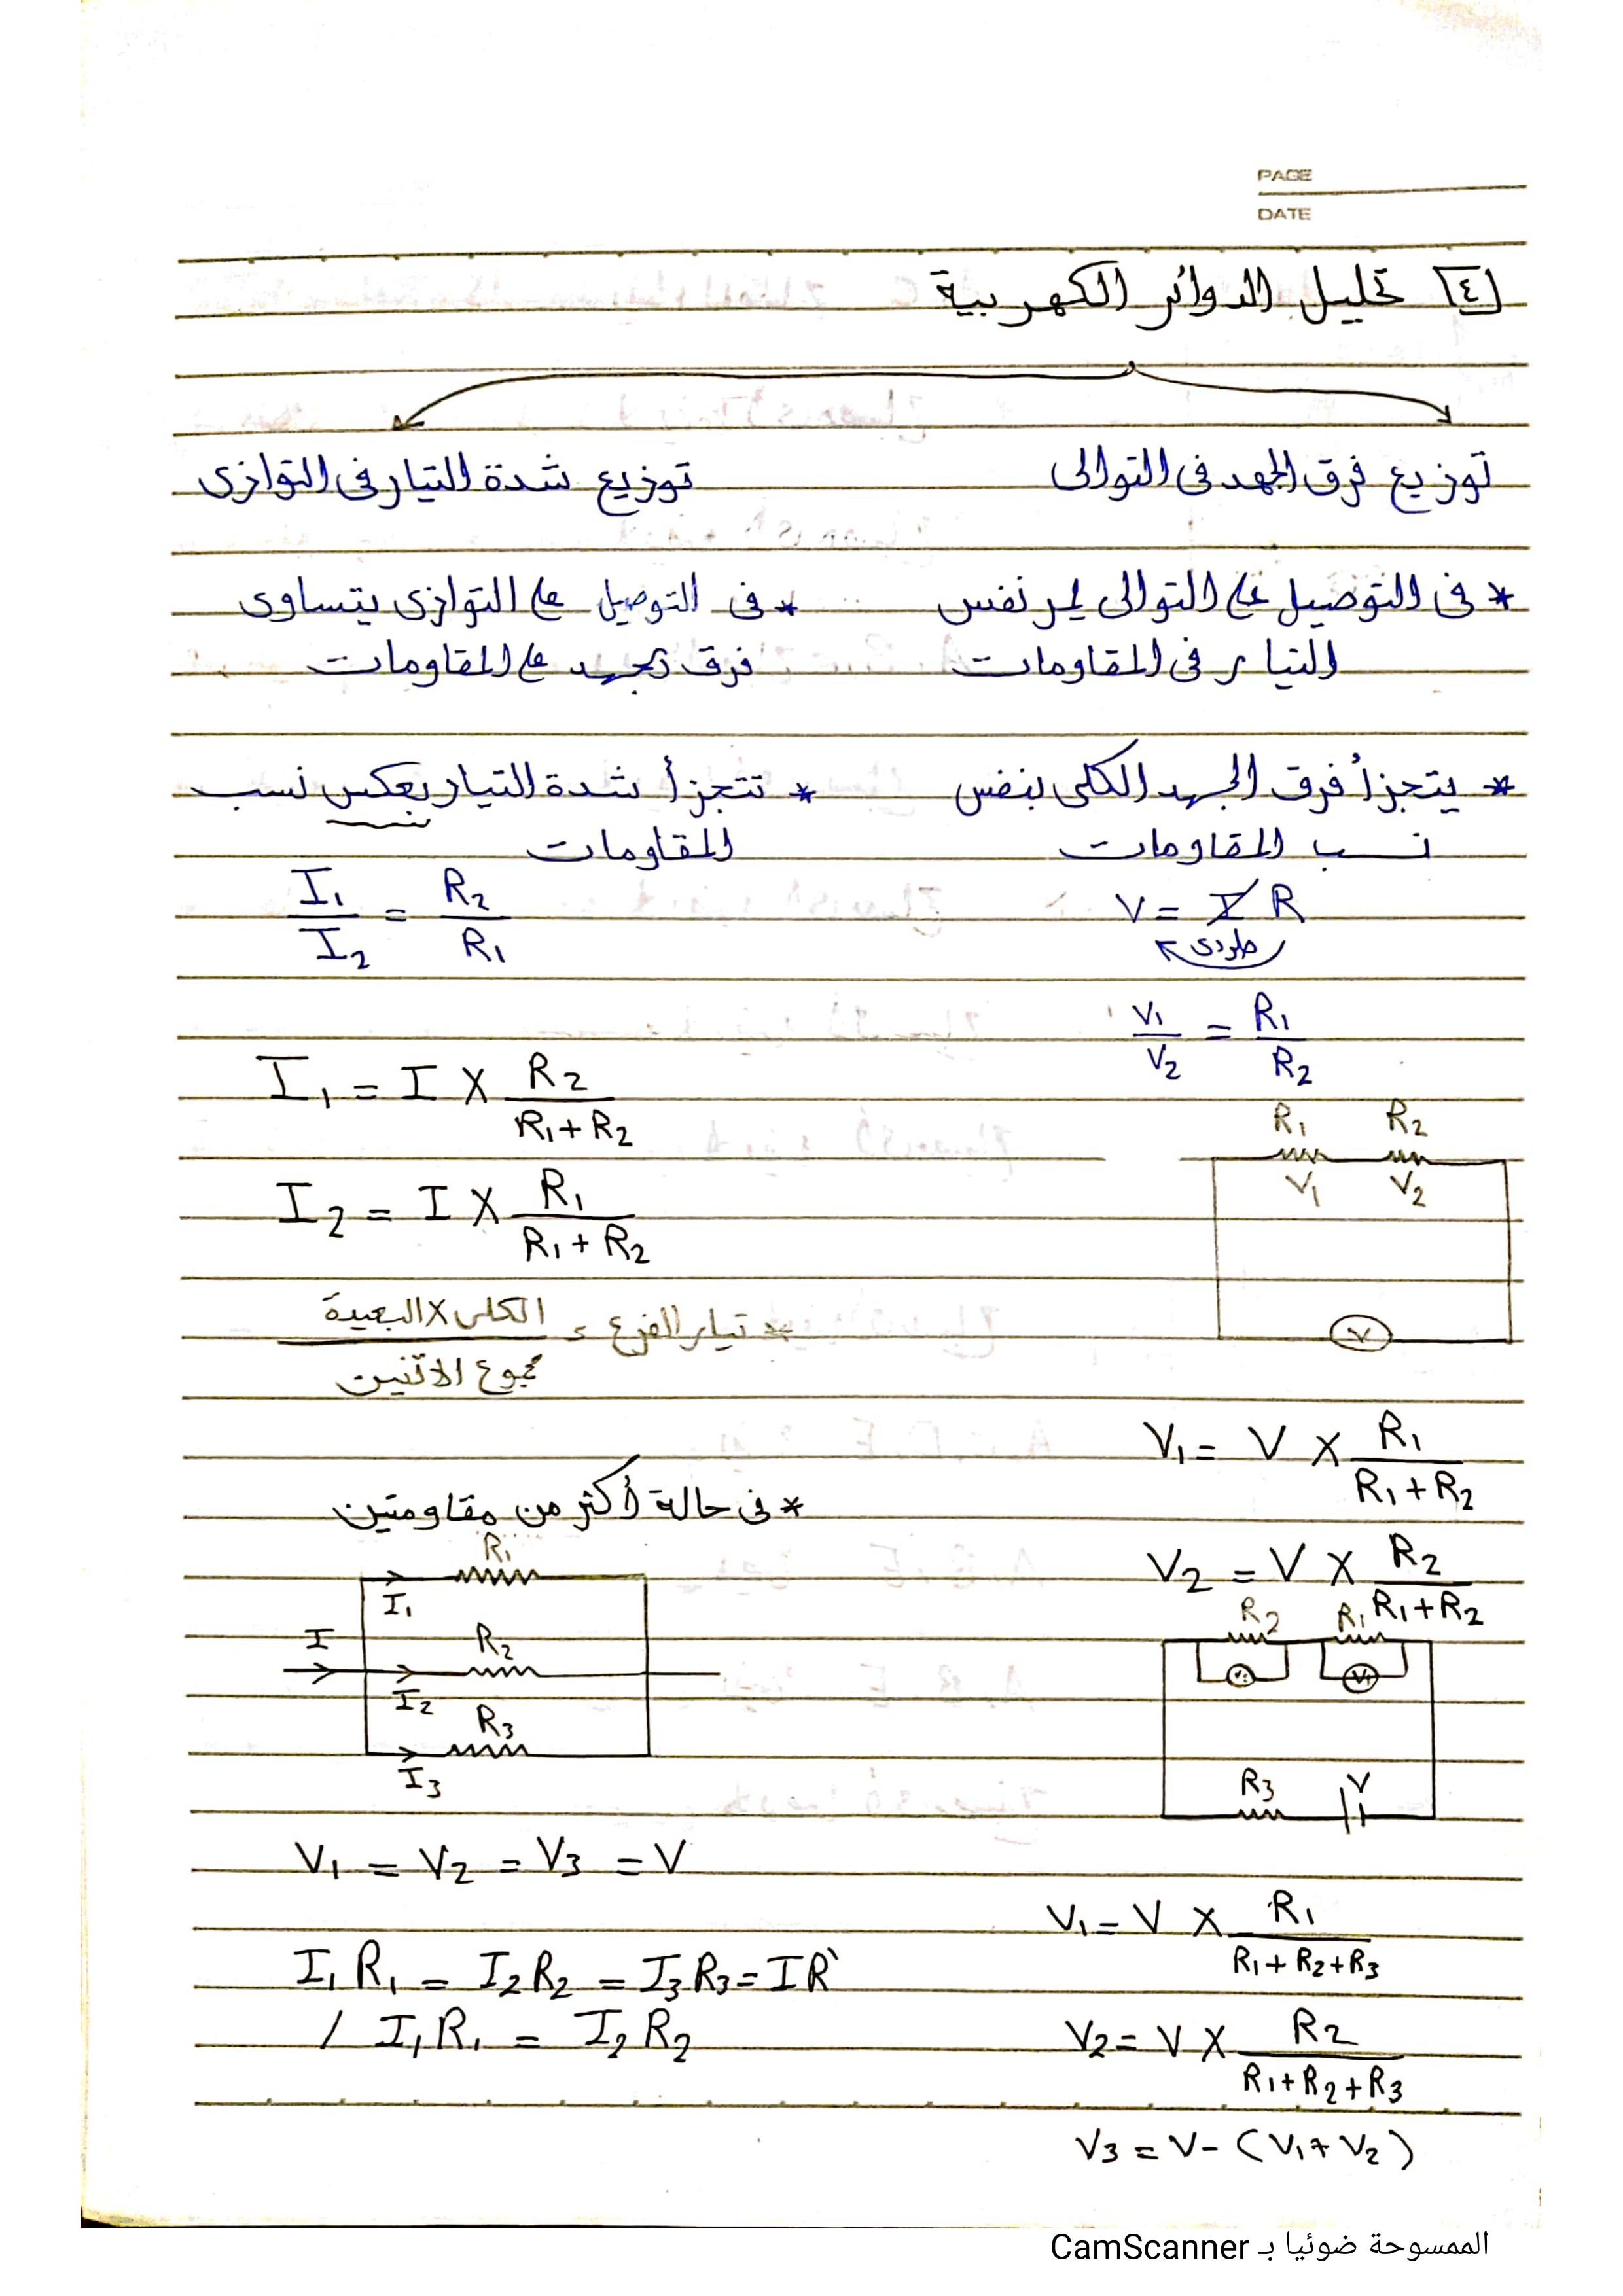 PAGE
DATE
[٤] تحليل الدوائر الكهربية
توزيع فرق الجهد فى التوالى
* فى التوصيل على التوالى يمر نفس
التيار فى المقاومات
* يتجزأ فرق الجهد الكلى بنفس
نسب المقاومات
V = I R
طردى
V₁ / V₂ = R₁ / R₂
R₁ R₂
V₁ V₂
V
V₁ = V X R₁ / (R₁ + R₂)
V₂ = V X R₂ / (R₁ + R₂)
R₂ R₁
V₂ V₁
R₃ V
V₁ = V X R₁ / (R₁ + R₂ + R₃)
V₂ = V X R₂ / (R₁ + R₂ + R₃)
V₃ = V - (V₁ + V₂)
توزيع شدة التيار فى التوازى
* فى التوصيل على التوازى يتساوى
فرق الجهد على المقاومات
* تتجزأ شدة التيار بعكس نسب
المقاومات
I₁ / I₂ = R₂ / R₁
I₁ = I X R₂ / (R₁ + R₂)
I₂ = I X R₁ / (R₁ + R₂)
* تيار الفرع = الكلى X البعيدة / مجموع الاتنين
* فى حالة أكثر من مقاومتين
R₁
I₁
I R₂
I₂
R₃
I₃
V₁ = V₂ = V₃ = V
I₁ R₁ = I₂ R₂ = I₃ R₃ = I R`
/ I₁ R₁ = I₂ R₂
الممسوحة ضوئيا بـ CamScanner